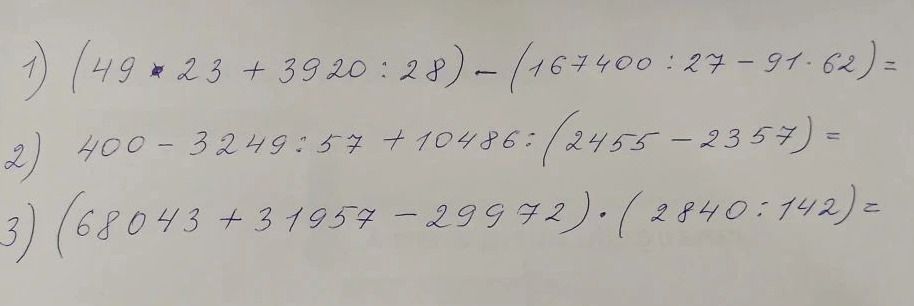 1) (49 · 23 + 3920 : 28) - (167400 : 27 - 91 · 62) =
2) 400 - 3249 : 57 + 10486 : (2455 - 2357) =
3) (68043 + 31957 - 29972) · (2840 : 142) =